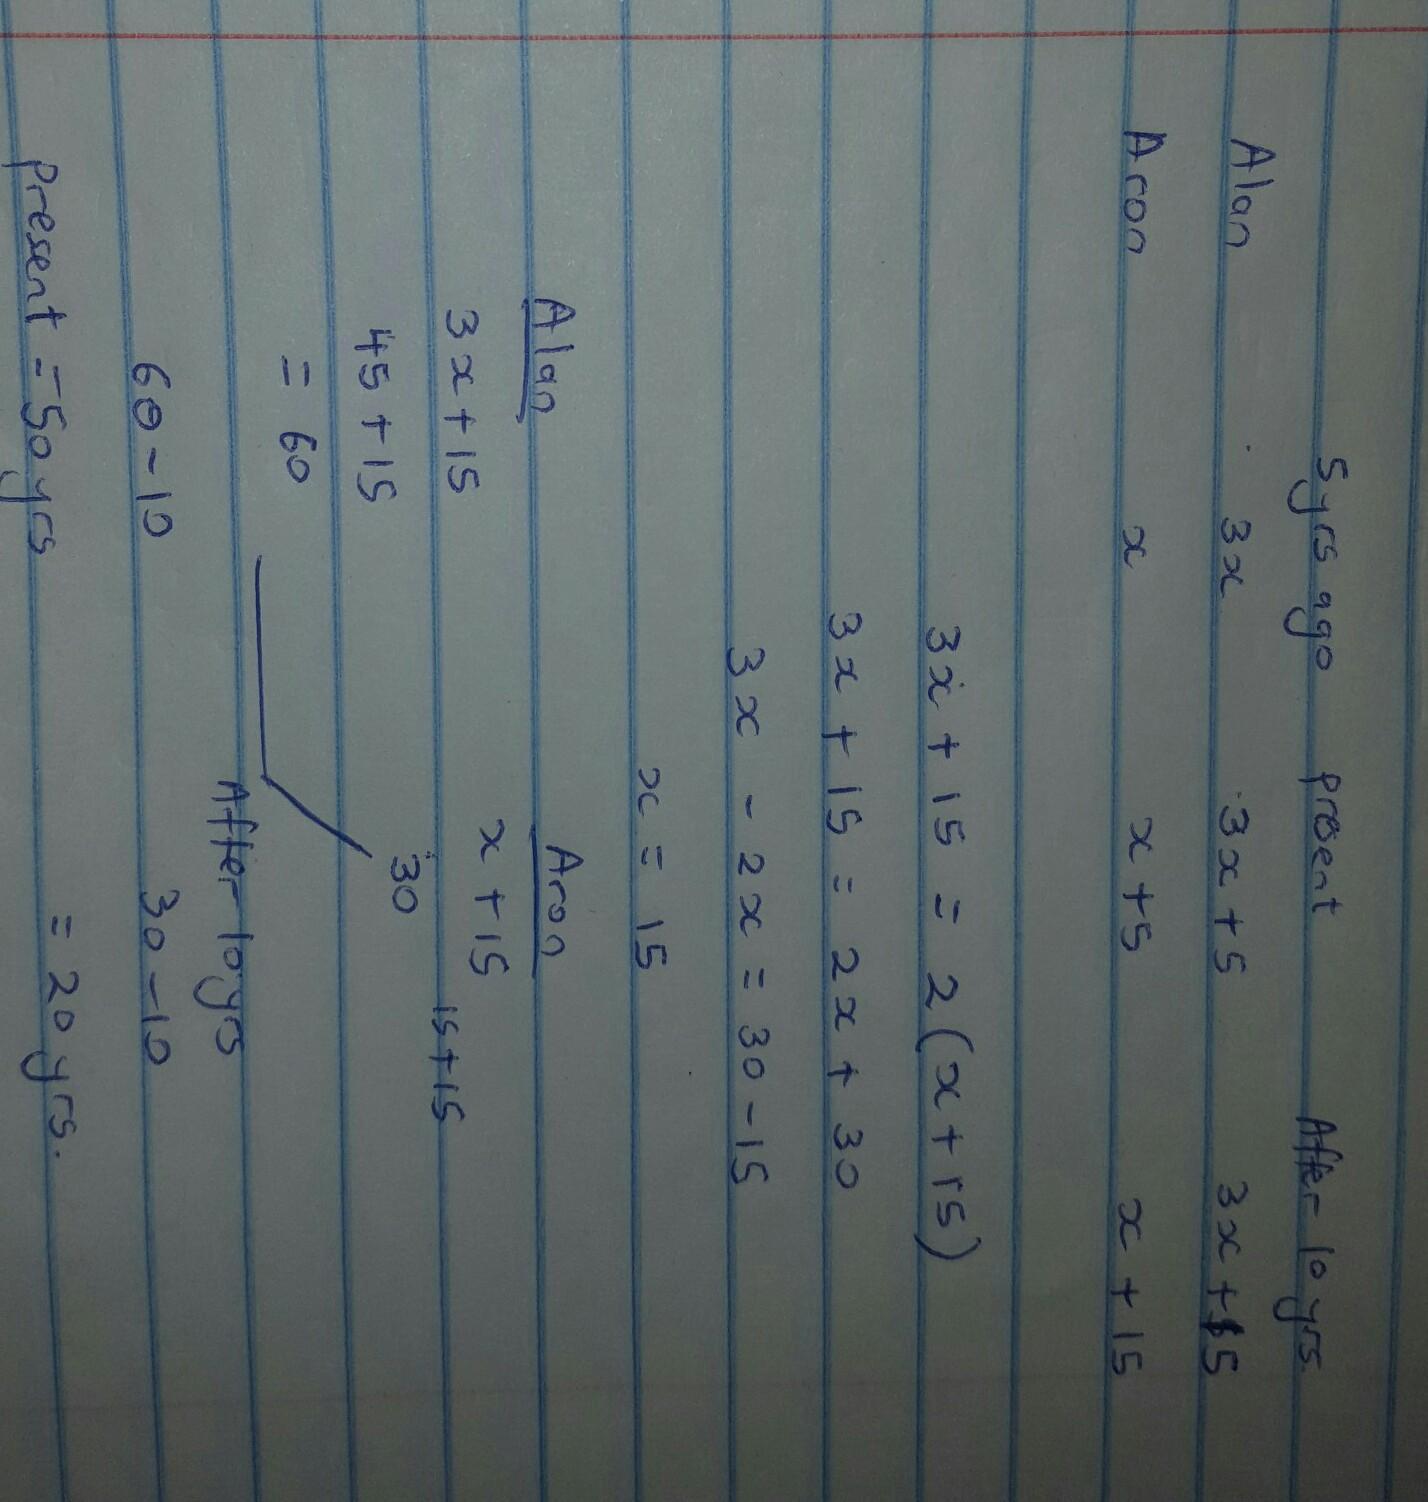 5yrs ago present After 10 yrs
Alan 3x 3x+5 3x+15
Aron x x+5 x+15
3x + 15 = 2(x+15)
3x + 15 = 2x + 30
3x - 2x = 30 - 15
x = 15
Alan Aron
3x+15 x+15
45+15 15+15
= 60 30
After 10yrs
60-10 30-10
Present = 50yrs = 20 yrs.